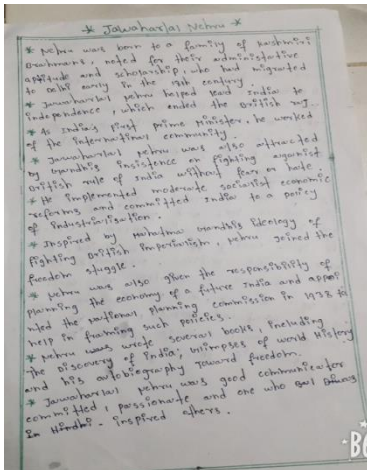 * Jawaharlal Nehru *
* Nehru was born to a family of Kashmiri
Brahmans, noted for their administrative
aptitude and scholarship, who had migrated
to Delhi early in the 18th century.
* Jawaharlal Nehru helped lead India to
independence, which ended the British raj.
* As India's first prime Minister, he worked
of the international community.
* Jawaharlal Nehru was also attracted
by Gandhis insistence on fighting against
British rule of India without fear or hate.
* He implemented moderate socialist economic
reforms and committed India to a policy
of industrialisation.
* Inspired by Mahatma Gandhis ideology of
fighting British imperialism, Nehru joined the
freedom stuggle.
* Nehru was also given the responsibility of
planning the economy of a future India and appoi
nted the national planning commission in 1938 to
help in framing such policies.
* Nehru was wrote several books, including
The Discovery of India, Glimpses of world History
and his autobiography Toward freedom.
* Jawaharlal Nehru was good communicator
committed, passionate and one who
in Hindhi. inspired others.